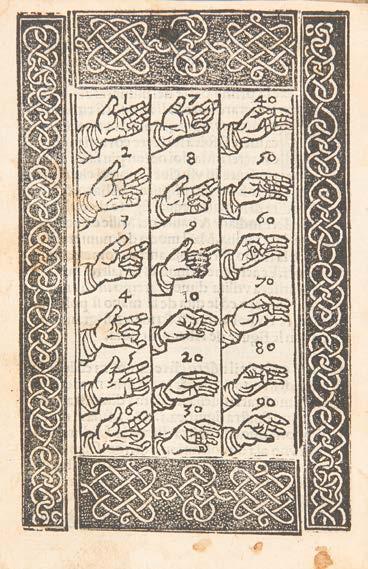 1 7 40
2 8 50
3 9 60
4 10 70
5 20 80
6 30 90